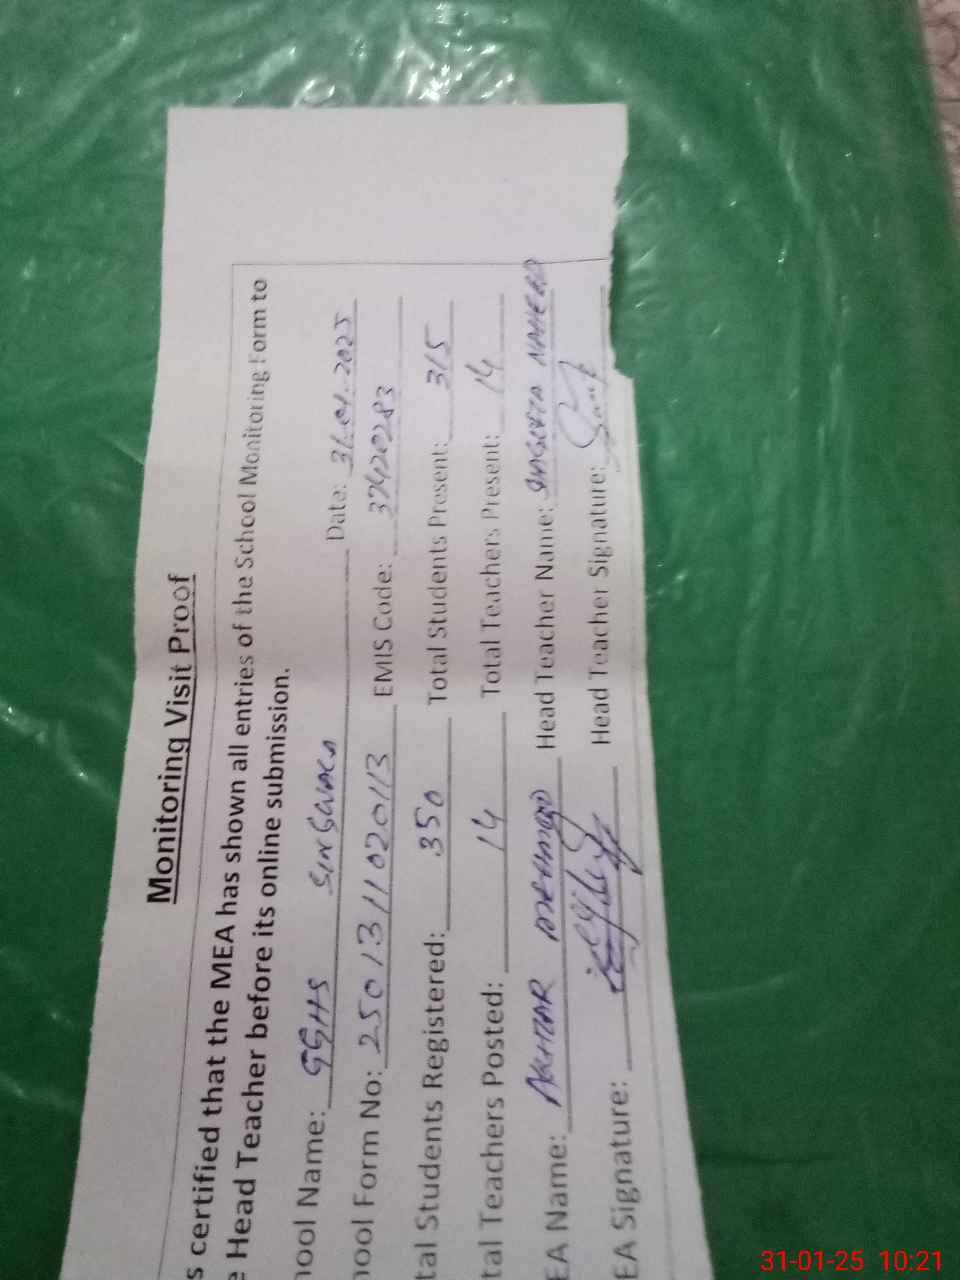 Monitoring Visit Proof
s certified that the MEA has shown all entries of the School Monitoring Form to
e Head Teacher before its online submission.
hool Name: GGHS SINGWALA Date: 31.01.2025
hool Form No: 2501311020113 EMIS Code: 37420283
tal Students Registered: 350 Total Students Present: 315
tal Teachers Posted: 14 Total Teachers Present: 14
EA Name: AKHTAR MEHMOOD Head Teacher Name:
EA Signature: Head Teacher Signature:
31-01-25 10:21